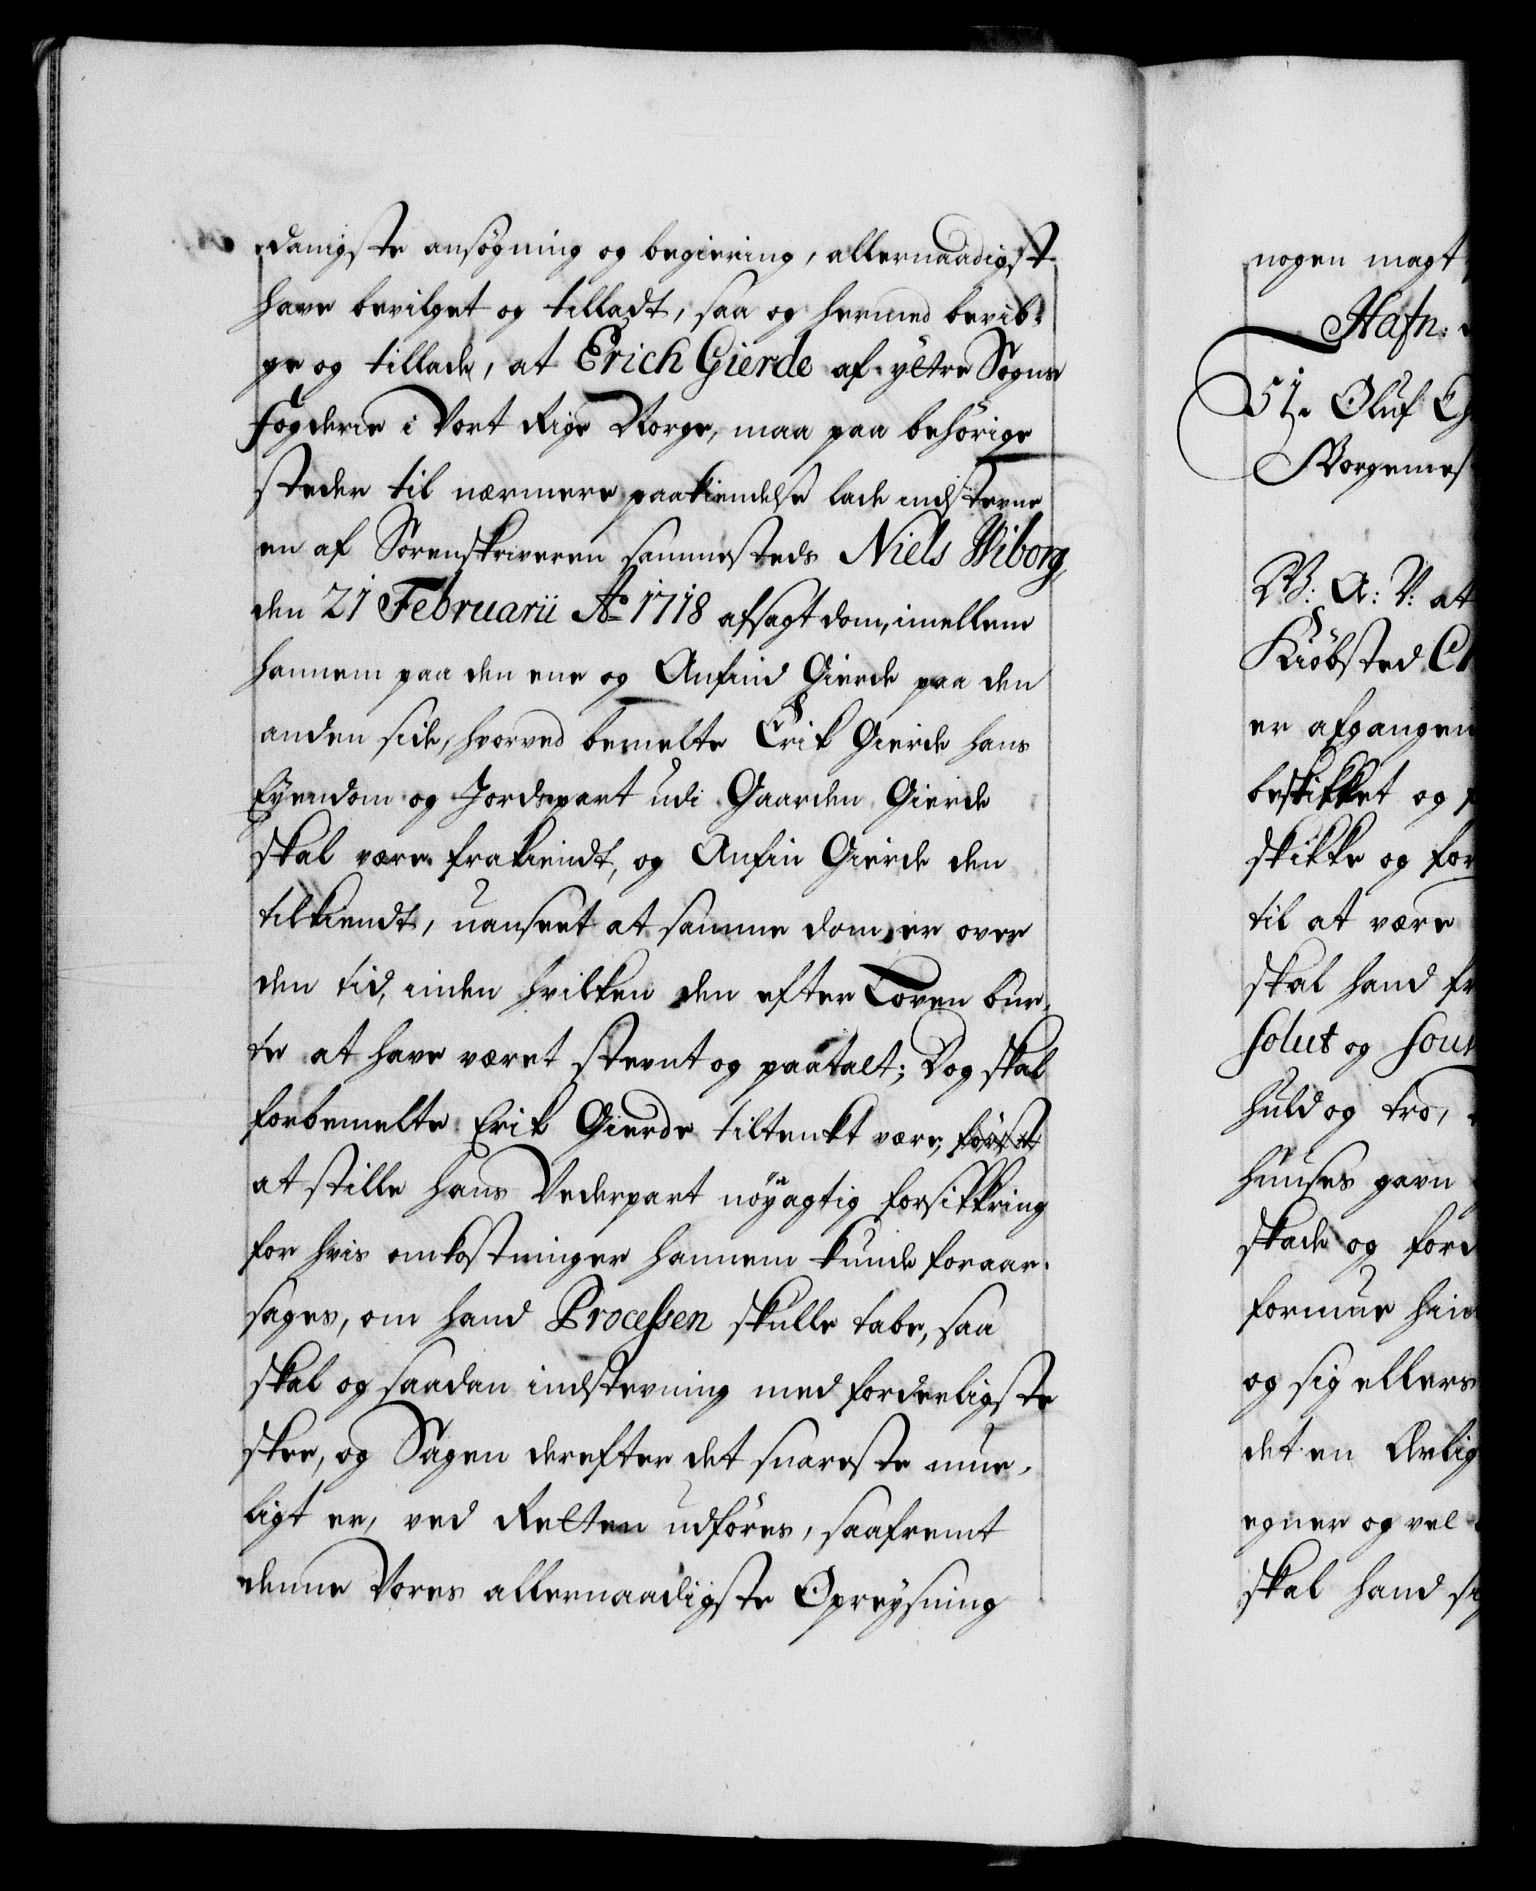 danigste ansøgning og begiering, allernaadigst
have bevilget og tilladt, saa og hermed bevil-
ge og tillade, at Erich Gierde af yttre Sogns
Fogderie i Vort Rige Norge, maa paa behörige
steder til nærmere paakiendelse lade indstevne
en af Sorenskriveren sammesteds Niels Wiborg,
den 21 Februarii Ao 1718 afsagt dom, imellem
hannem paa den ene og Anfind Gierde paa den
anden side, hvorved bemelte Erik Gierde hans
Eyendom og Jordepart udi Gaarden Gierde
skal være frakiendt, og Anfin Gierde den
tilkiendt, uanseet at samme dom er over
den tid, inden hvilken den efter Loven bur-
te at have været stevnt og paatalt; Dog skal
forbemelte Erik Gierde tiltenkt være, först
at stille hans Vederpart nöyagtig forsikkring
for hvis omkostninger hannem kunde foraar-
sages, om hand Processen skulle tabe, saa
skal og saadan indstevning med forderligste
skee, og Sagen derefter det snareste mue-
ligt er, ved Retten udföres, saafremt
denne Vores allernaadigste Opreysning
nogen magt
Hafn:
51. Oluf
Borgemes
B: A: V: at
Kiöbsted
er afgangen
beskikket og
skikke og for
til at være
skal hand
solut og
huld og tro,
huuses gavn
skade og
formue
og sig ellers
det en
egner og vel
skal hand